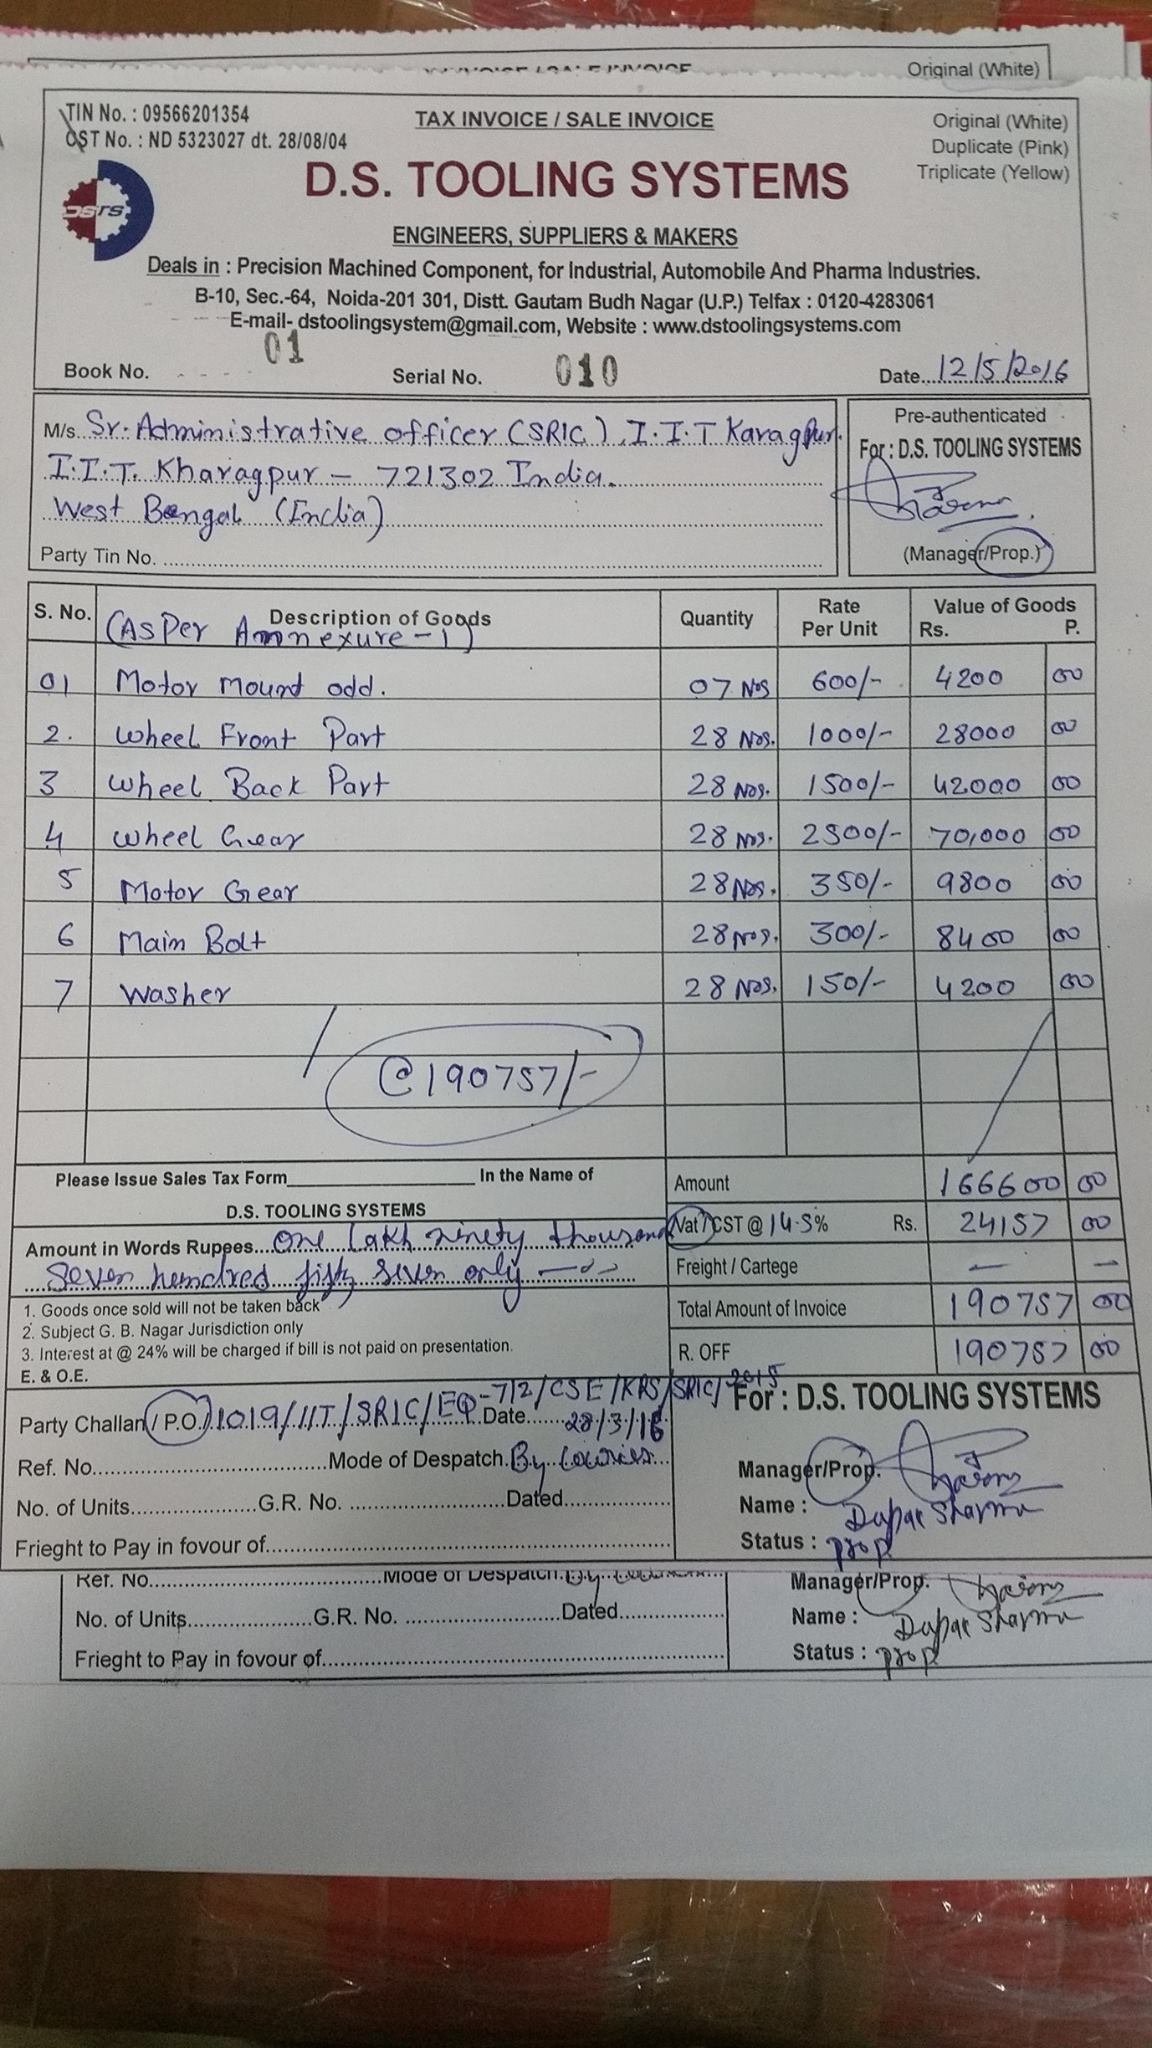 Original (White)
TIN No. : 09566201354
CST No. : ND 5323027 dt. 28/08/04
TAX INVOICE / SALE INVOICE
Original (White)
Duplicate (Pink)
Triplicate (Yellow)
DSTS
D.S. TOOLING SYSTEMS
ENGINEERS, SUPPLIERS & MAKERS
Deals in : Precision Machined Component, for Industrial, Automobile And Pharma Industries.
B-10, Sec.-64, Noida-201 301, Distt. Gautam Budh Nagar (U.P.) Telfax : 0120-4283061
E-mail- dstoolingsystem@gmail.com, Website : www.dstoolingsystems.com
Book No. 01 Serial No. 010 Date 12/5/2016
M/s Sr. Administrative officer (SRIC) I.I.T Karagpur.
I.I.T. Kharagpur - 721302 India.
West Bengal (India)
Party Tin No.
Pre-authenticated
For : D.S. TOOLING SYSTEMS
(Manager/Prop.)
S. No. Description of Goods Quantity Rate Per Unit Value of Goods Rs. P.
(As Per Annexure-1)
01 Motor mount odd. 07 Nos 600/- 4200 00
2. Wheel Front Part 28 Nos. 1000/- 28000 00
3 Wheel Back Part 28 Nos. 1500/- 42000 00
4 Wheel Gear 28 Nos. 2500/- 70,000 00
5 Motor Gear 28 Nos. 350/- 9800 00
6 Main Bolt 28 Nos. 300/- 8400 00
7 Washer 28 Nos. 150/- 4200 00
@190757/-
Please Issue Sales Tax Form In the Name of
D.S. TOOLING SYSTEMS
Amount 166600 00
Vat / CST @ 14.5% Rs. 24157 00
Amount in Words Rupees One lakh ninety thousand
Seven hundred fifty seven only
Freight / Cartege — —
1. Goods once sold will not be taken back
2. Subject G. B. Nagar Jurisdiction only
3. Interest at @ 24% will be charged if bill is not paid on presentation.
E. & O.E.
Total Amount of Invoice 190757 00
R. OFF 190757 00
Party Challan / P.O. 1019/IIT/SRIC/EQ-7/2/CSE/KRS/SRIC/2015 Date 28/3/16
Ref. No. Mode of Despatch By
No. of Units G.R. No. Dated
Frieght to Pay in fovour of
For : D.S. TOOLING SYSTEMS
Manager/Prop.
Name : Sharma
Status : prop
Ref. No. Mode of Despatch. By
No. of Units G.R. No. Dated
Frieght to Pay in fovour of
Manager/Prop.
Name : Sharma
Status : prop